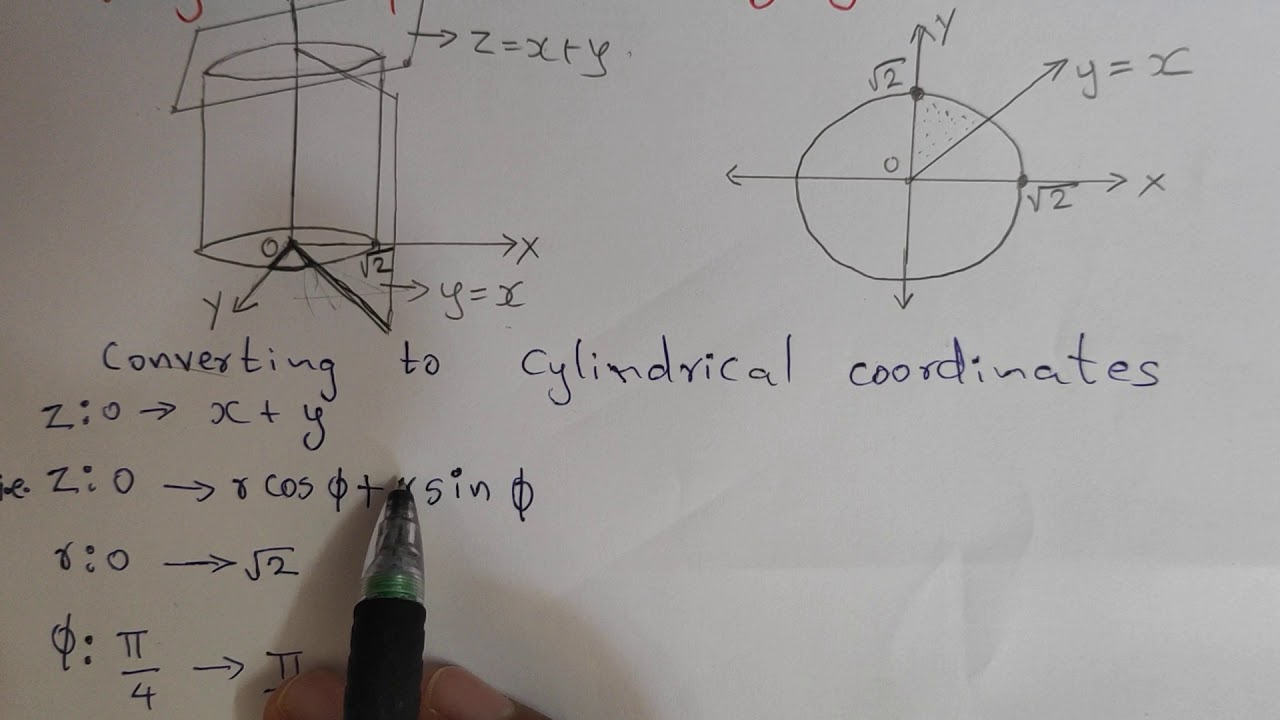 z=x+y
Y
√2
y=x
O
X
√2
O
X
√2
Y
y=x
Converting to cylindrical coordinates
z:0→ x+y
i.e. z:0 → r cos ϕ+ r sin ϕ
r:0 → √2
ϕ: π/4 → π